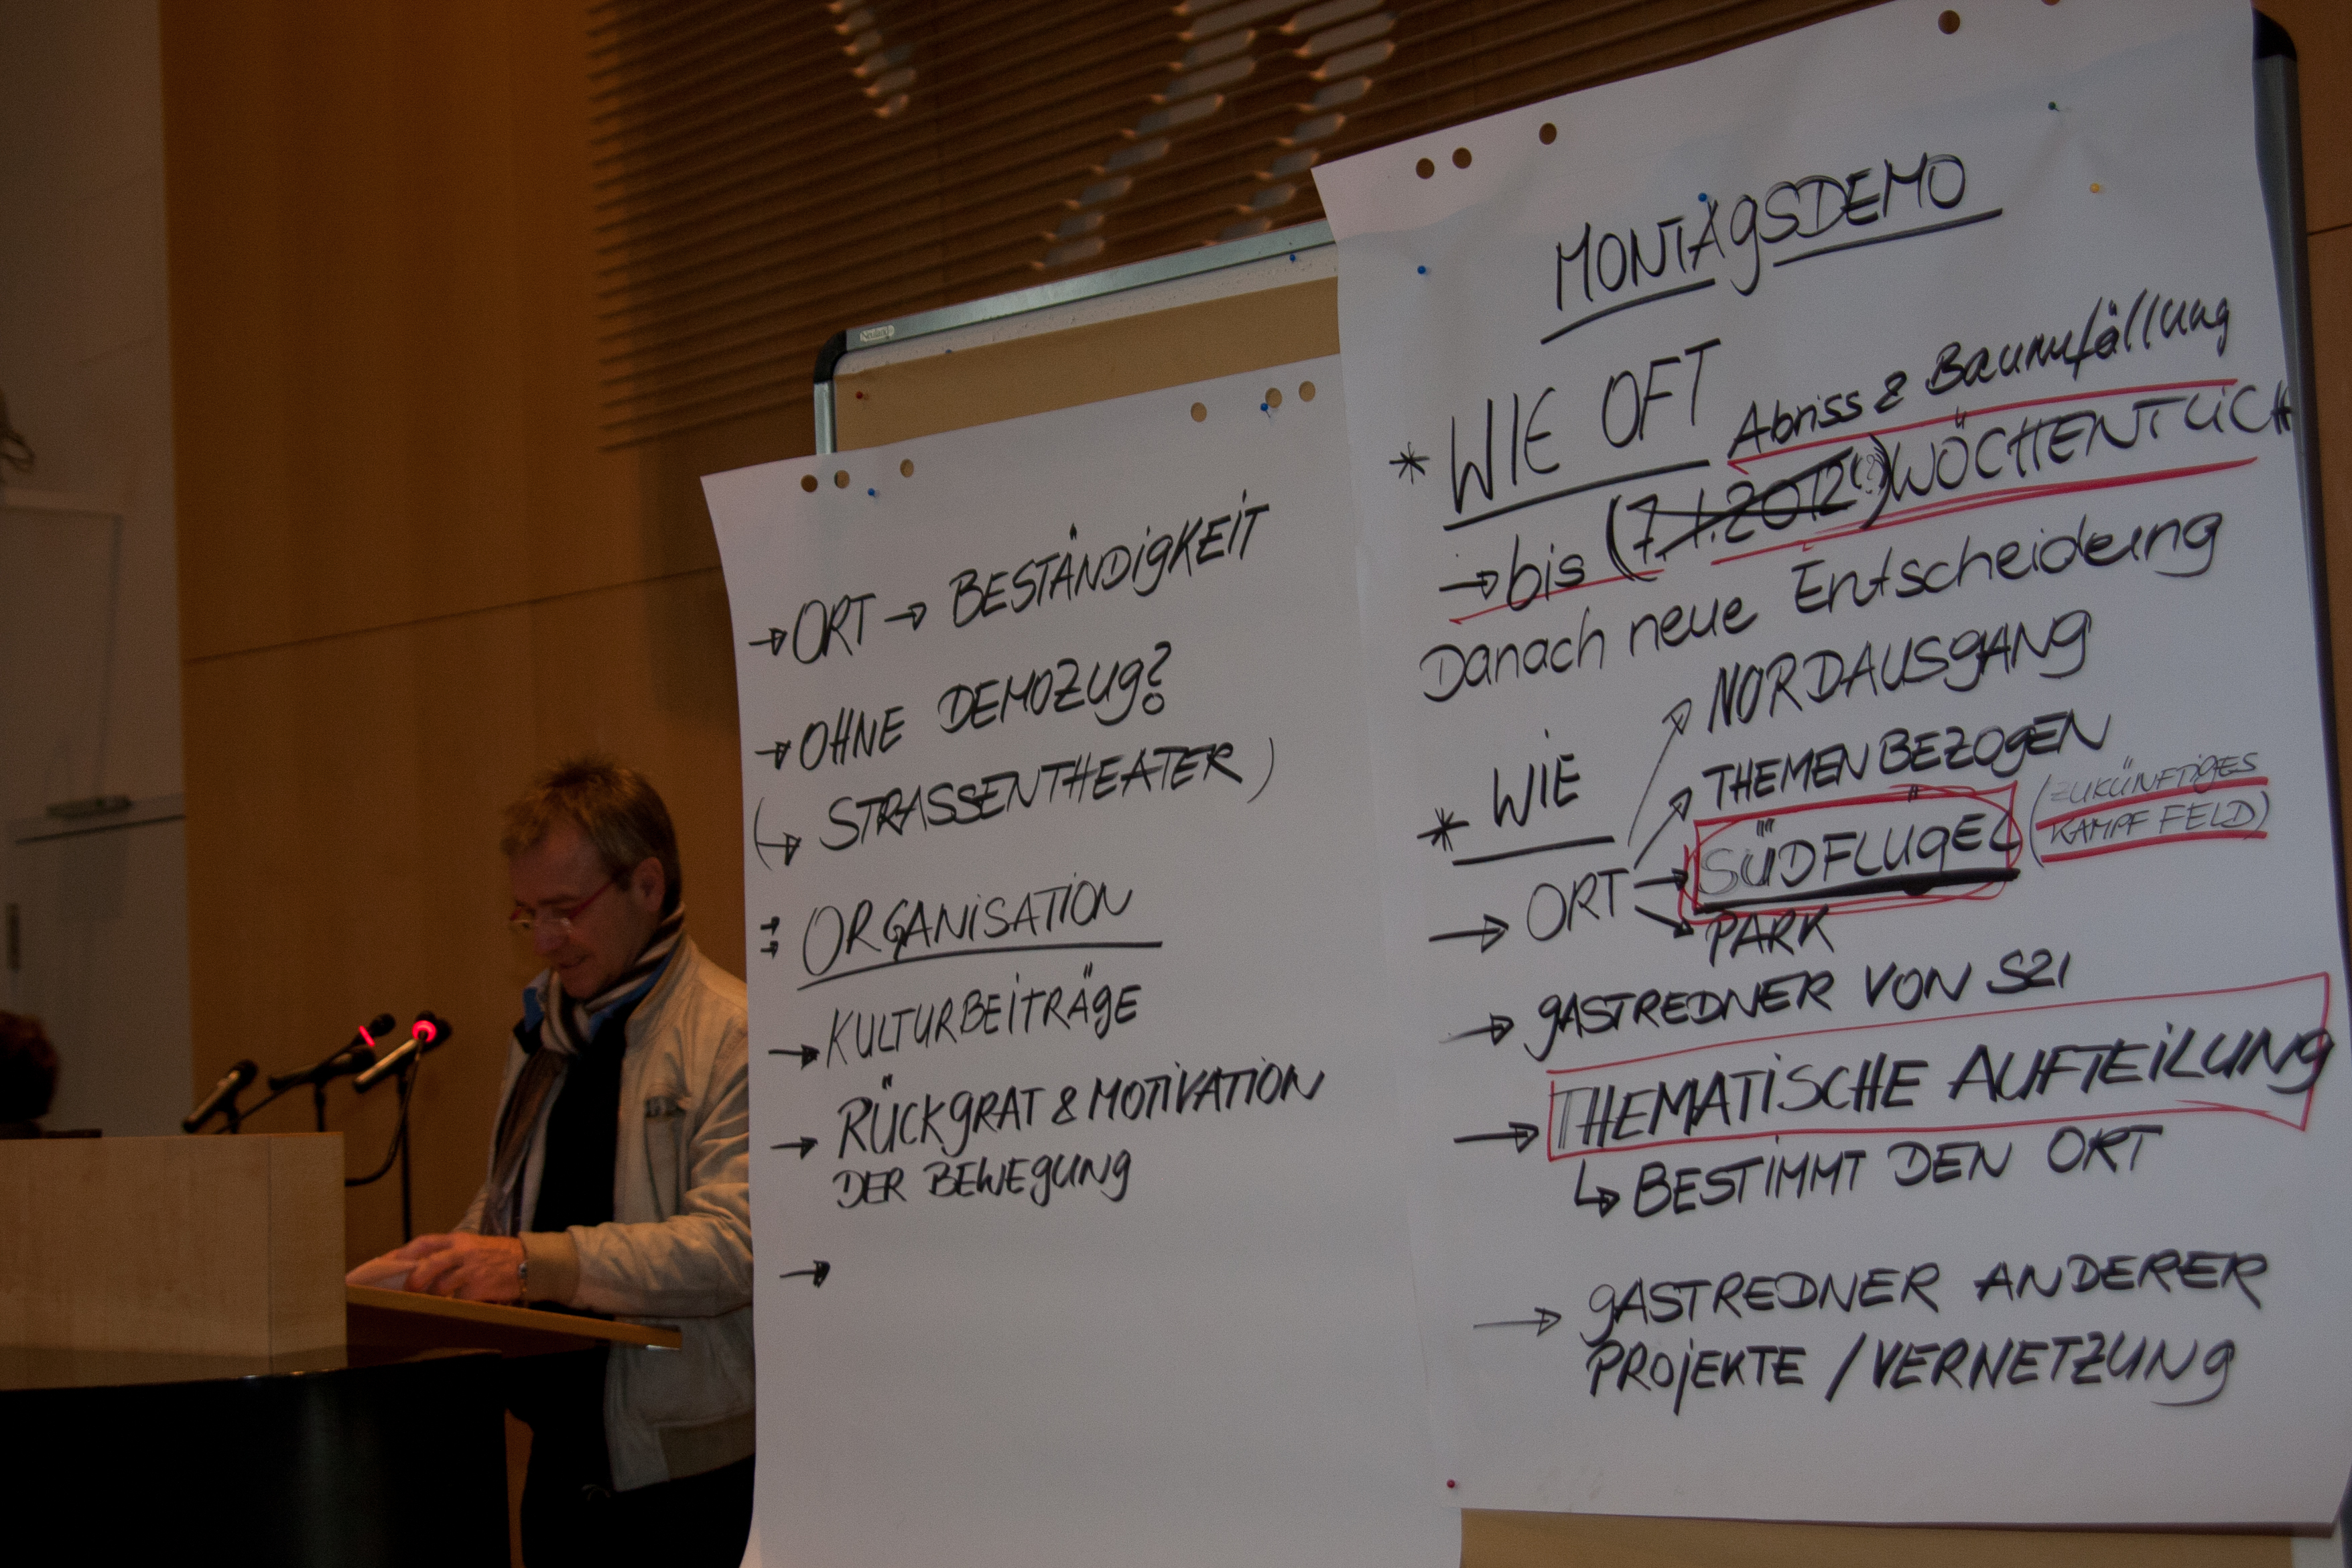 → ORT → BESTÄNDIGKEIT
→ OHNE DEMOZUG?
(↳ STRASSENTHEATER)
ORGANISATION
→ KULTURBEITRÄGE
→ RÜCKGRAT & MOTIVATION
DER BEWEGUNG
→
MONTAGSDEMO
* WIE OFT
Abriss & Baumfällung
→ bis (7.1.2012(?)) WÖCHENTLICH
Danach neue Entscheidung
NORDAUSGANG
* WIE
THEMENBEZOGEN
→ ORT → SÜDFLÜGEL (ZUKÜNFTIGES
KAMPFFELD)
PARK
→ GASTREDNER VON S21
→ THEMATISCHE AUFTEILUNG
↳ BESTIMMT DEN ORT
→ GASTREDNER ANDERER
PROJEKTE / VERNETZUNG